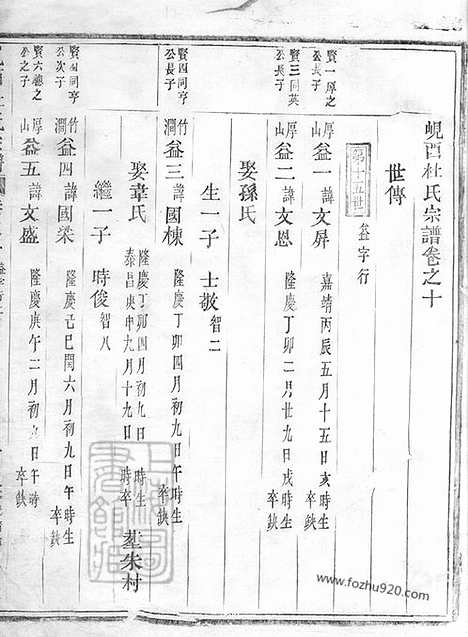 峴西杜氏宗譜卷之十
世傳
第十五世 益字行
賢一厚之公長子
厚山 益一 諱文屏 嘉靖丙辰五月十五日亥時生 卒缺
賢三同英公長子
厚山 益二 諱文恩 隆慶丁卯二月廿九日戌時生 卒缺
娶孫氏
生一子 士敬 智二
賢四同亨公長子
竹澗 益三 諱國棟 隆慶丁卯四月初九日午時生 卒缺
娶韋氏 隆慶丁卯四月初九日 時生 泰昌庚申九月十九日 時卒 墓朱村
繼一子 時俊 智八
賢四同亨公次子
竹澗 益四 諱國梁 隆慶己巳閏六月初九日午時生 卒缺
賢六德之公之子
厚山 益五 諱文盛 隆慶庚午二月初九日午時 卒缺
www.fozhu920.com